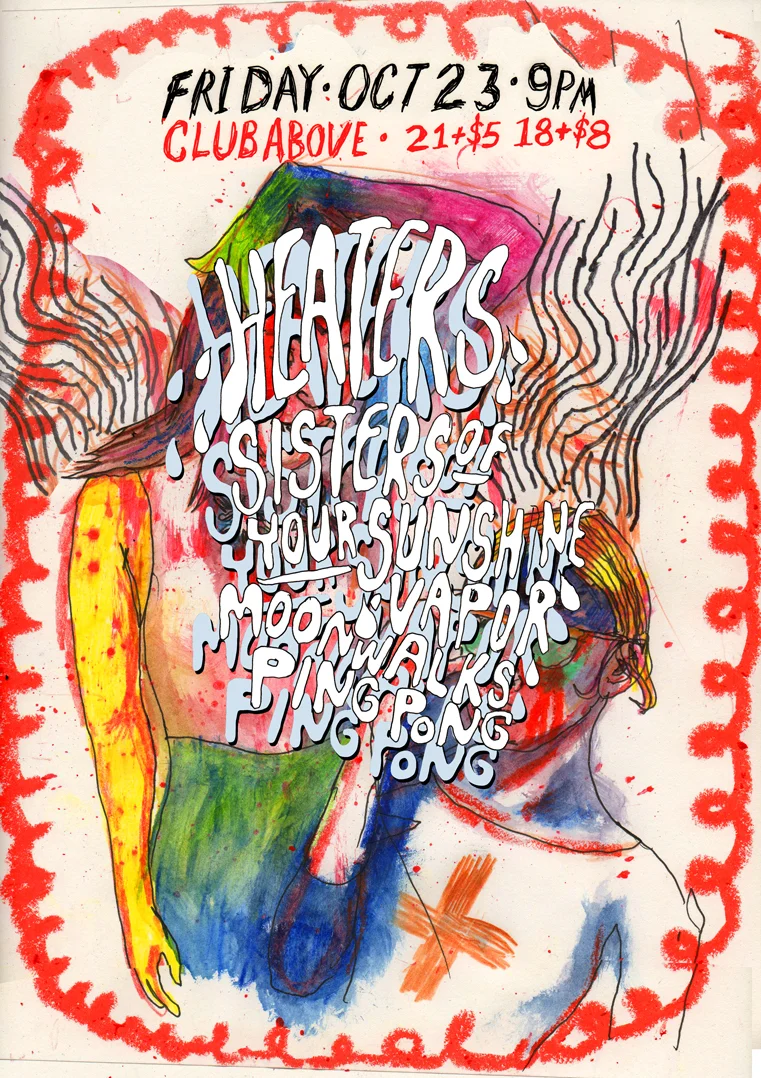 FRIDAY · OCT 23 · 9PM
CLUB ABOVE · 21+$5 18+$8
HEATERS
SISTERS OF
YOUR SUNSHINE
MOON VAPOR
WALKS
PING PONG